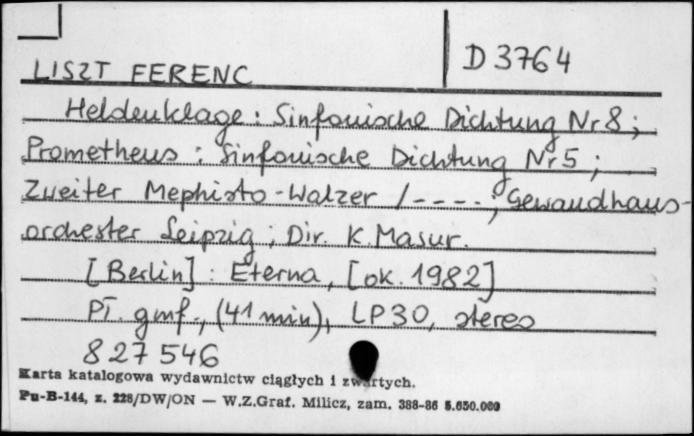 D 3764
LISZT FERENC
Heldenklage : Sinfonische Dichtung Nr 8 ;
Prometheus : Sinfonische Dichtung Nr 5 ;
Zweiter Mephisto-Walzer / ---- ; Gewandhaus-
orchester Leipzig ; Dir. K. Masur.
[Berlin] : Eterna, [ok. 1982]
Pł. gmf., (41 min), LP30, stereo
827 546
Karta katalogowa wydawnictw ciągłych i zwartych.
Pu-B-144, z. 228/DW/ON — W.Z.Graf. Milicz, zam. 388-86 5.650.000